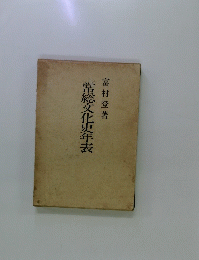 富村登著
常総文化史年表